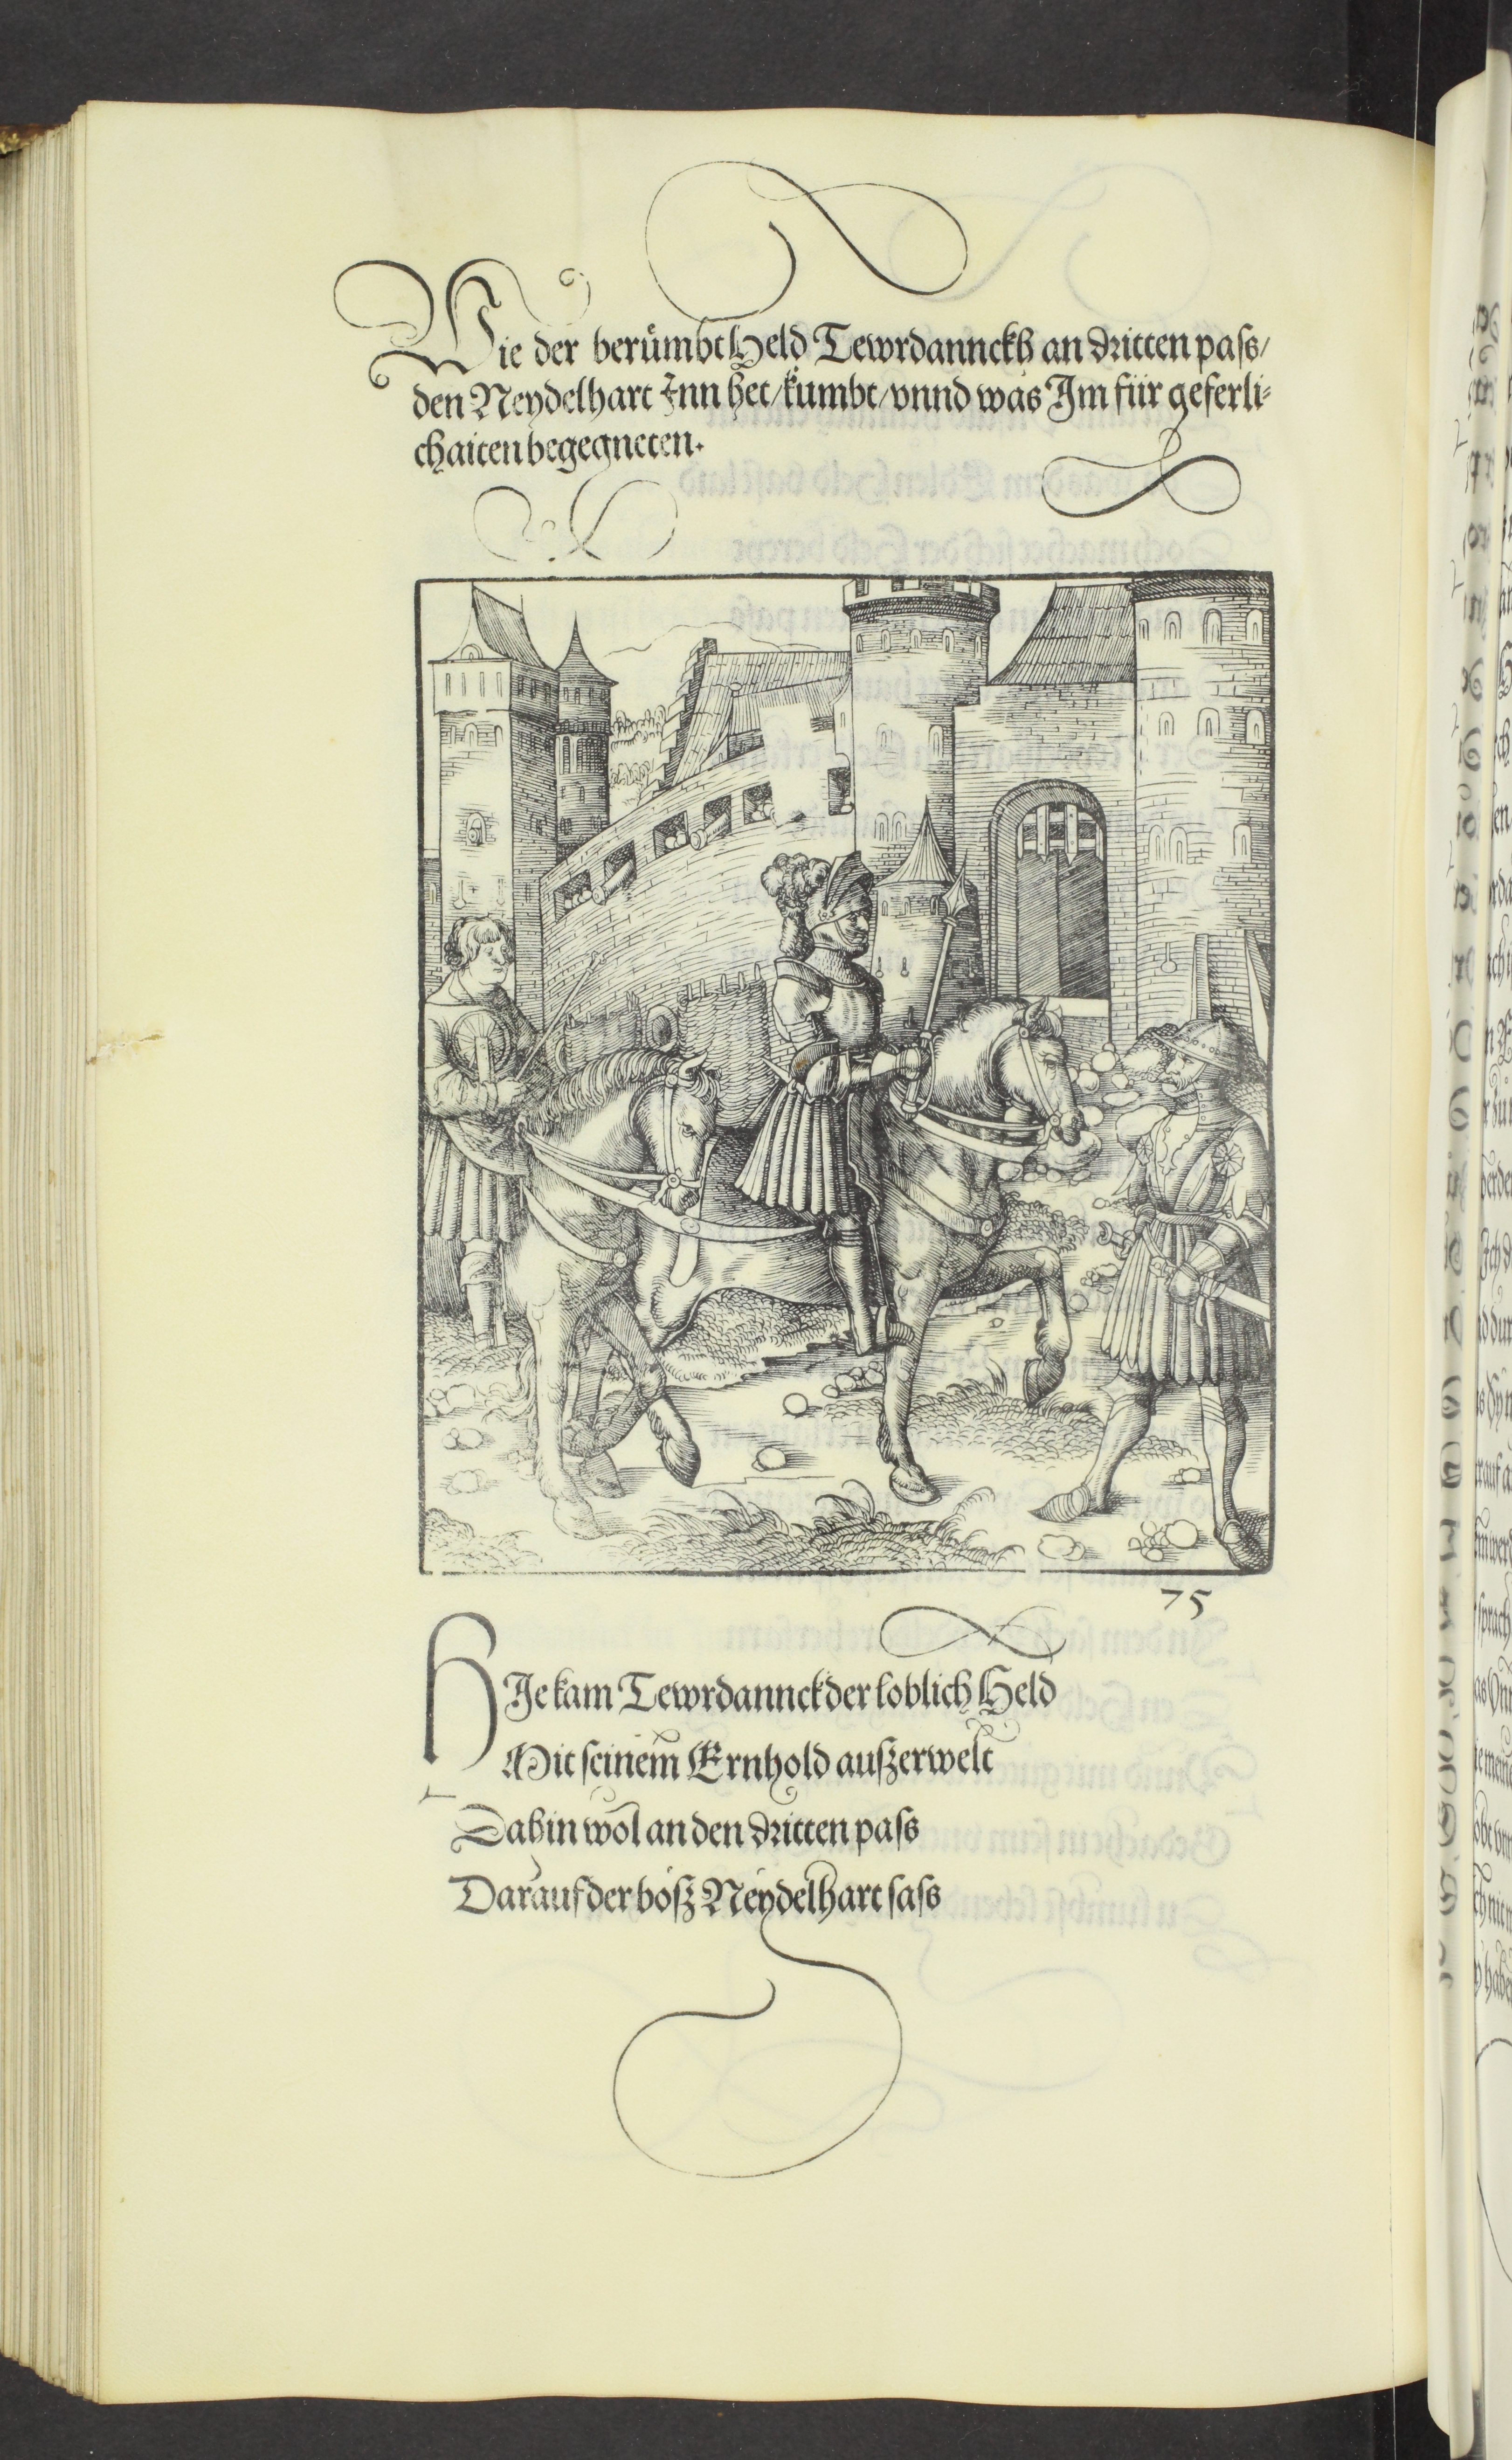 Wie der berůmbt Held Tewrdannckh an dritten pass/
den Neydelhart Inn het/kumbt/vnnd was Im für geferli⸗
chaiten begegneten.
75
HIe kam Tewrdannck der loblich Held
Mit seinem Ernhold außerwelt
Dahin wol an den dritten pass
Darauf der böß Neydelhart sass